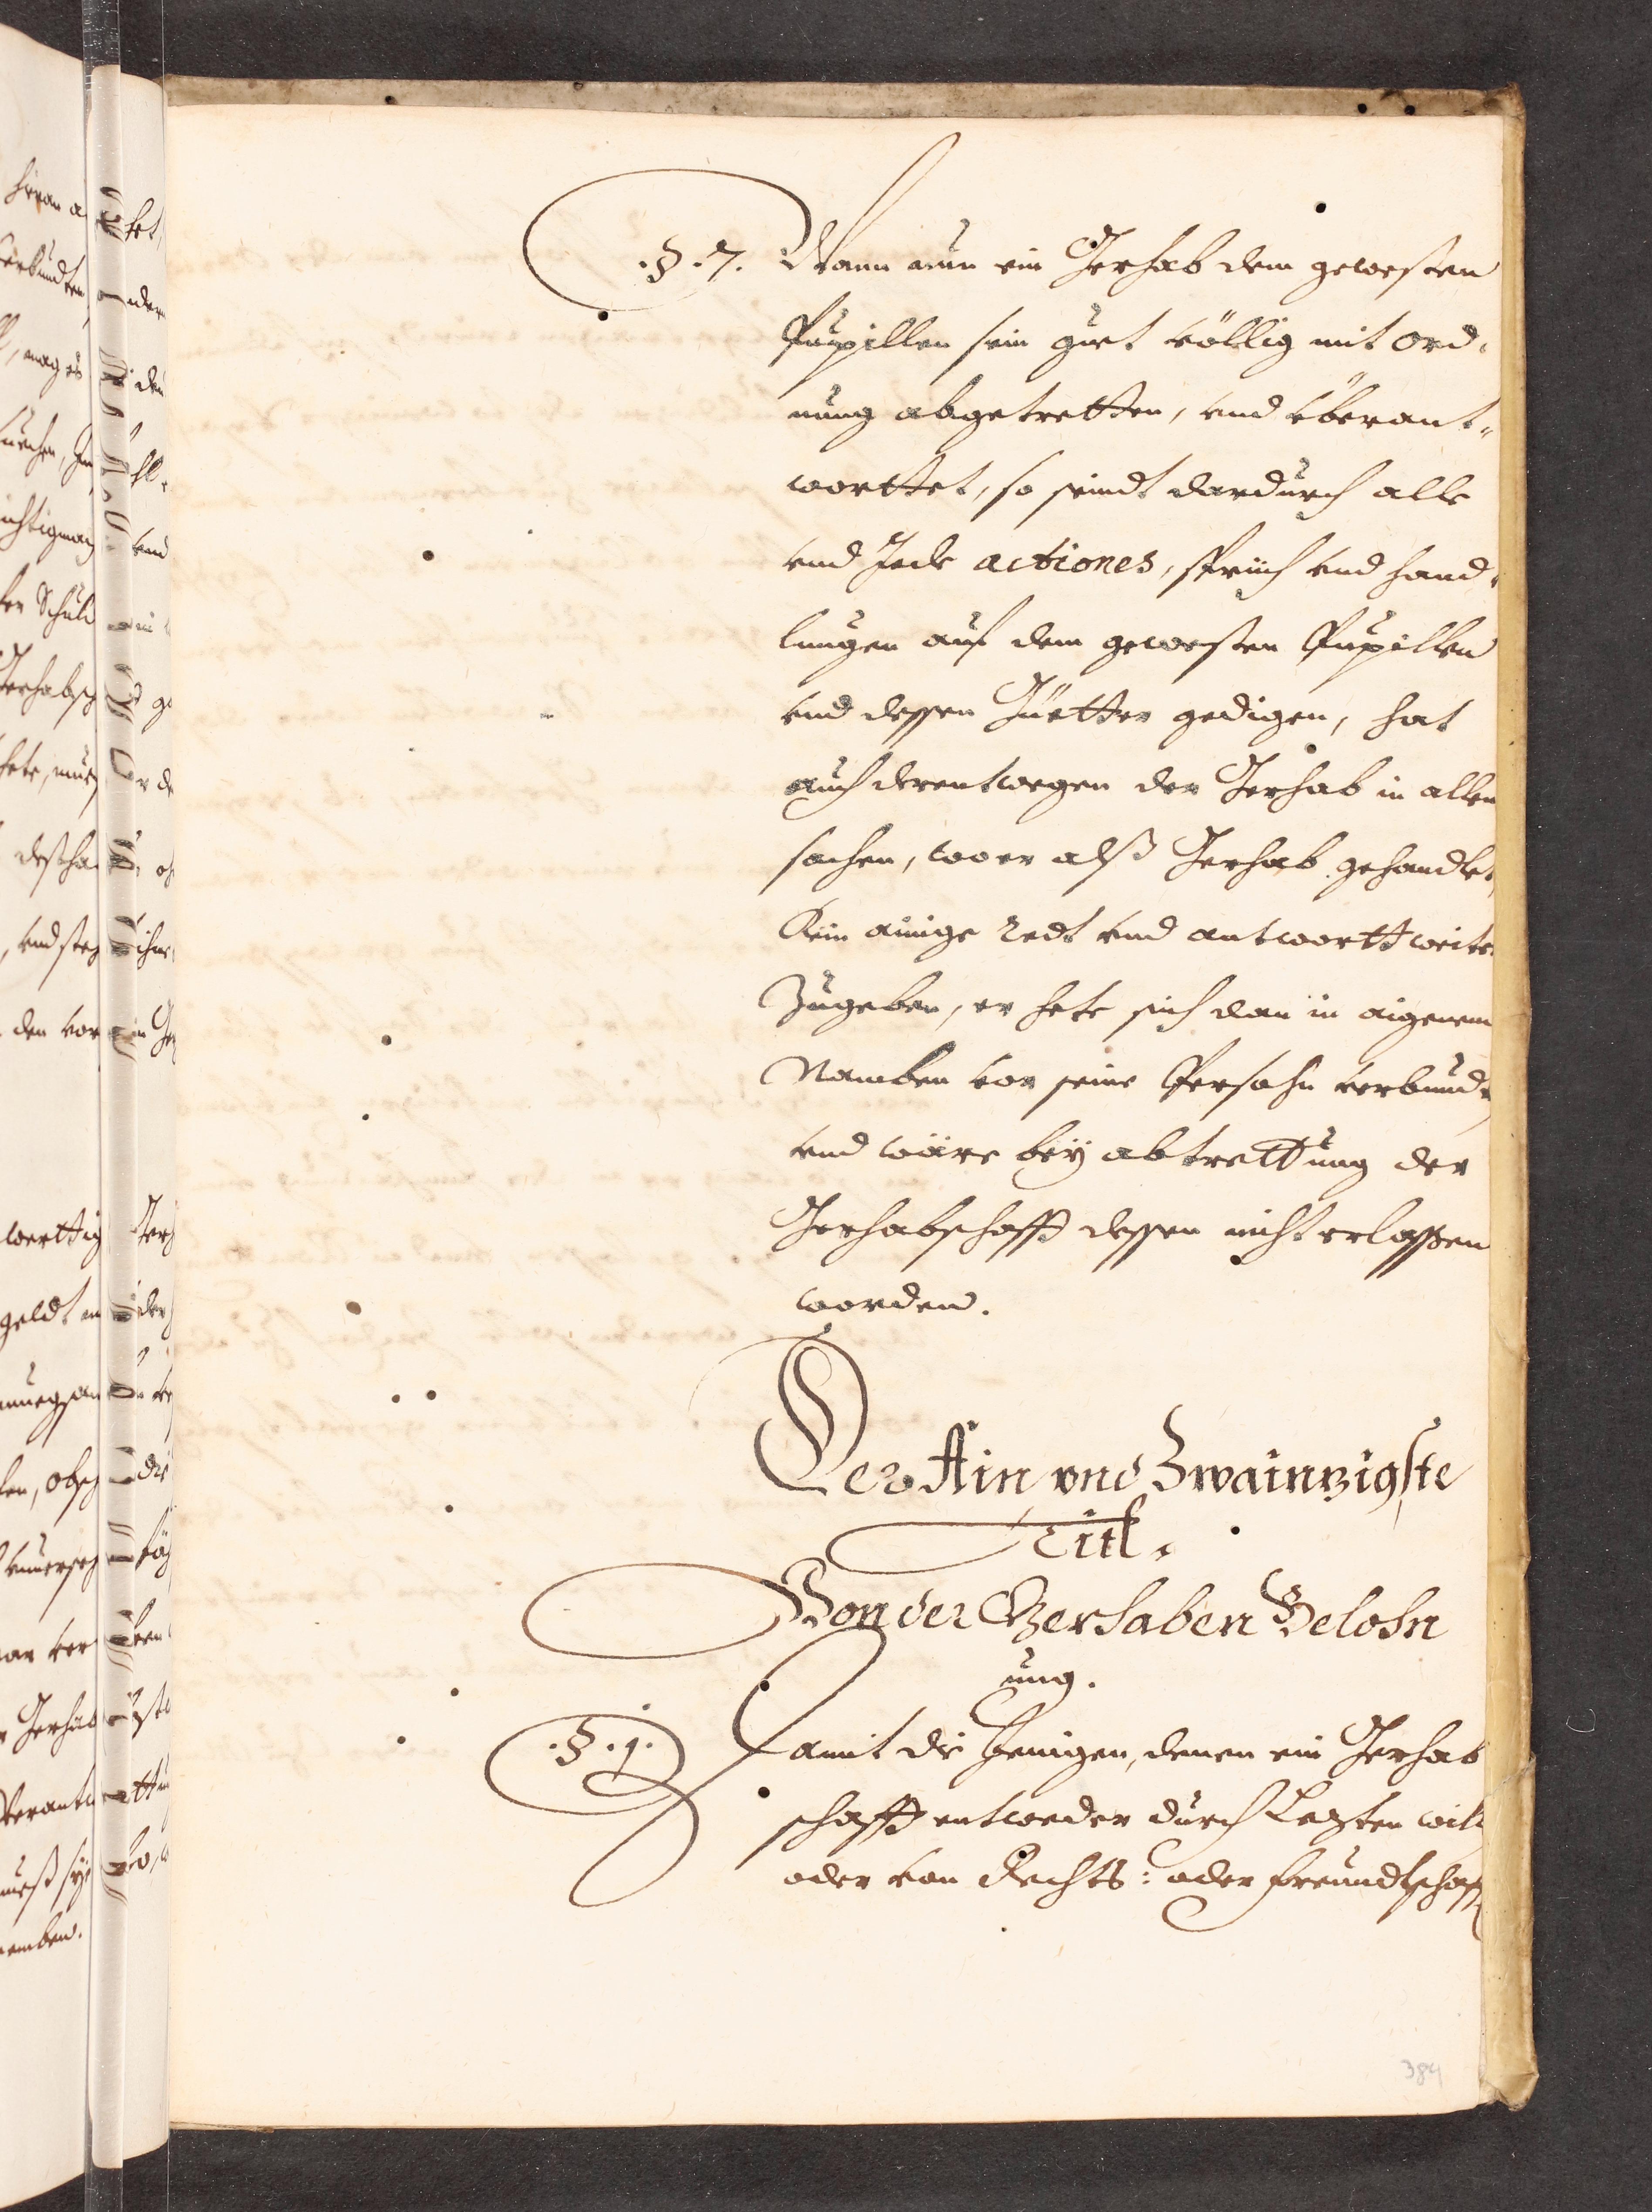 .§.7. Wann nun ein Gerhab dem gewesten
Pupillen sein guet völlig mit Ord-
nung abgetretten, vnd überant-
worttet, so seindt dardurch alle
vnd Jede actiones, sprüch vnd hand-
lungen auf dem gewesten Pupillen
vnd dessen Güetter gedigen, hat
auch derentwegen der Gerhab in allen
sachen, wo er alß Gerhab gehandlet
Kein ainige redt vnd antwortt weiter
Zugeben, er hete sich dan in aigenem
Namben vor seine Persohn verbunden
vnd wäre bey abtrettung der
Gerhabschafft dessen nicht erlassen
worden.
Der Ain vnd Zwainzigste
Titl.
Von der Gerhaben Belohn
ung.
.§.1. Damit die Jenigen, denen ein Gerhab
schafft entweder durch Lezten will
oder von Rechts: oder freundtschafft
384